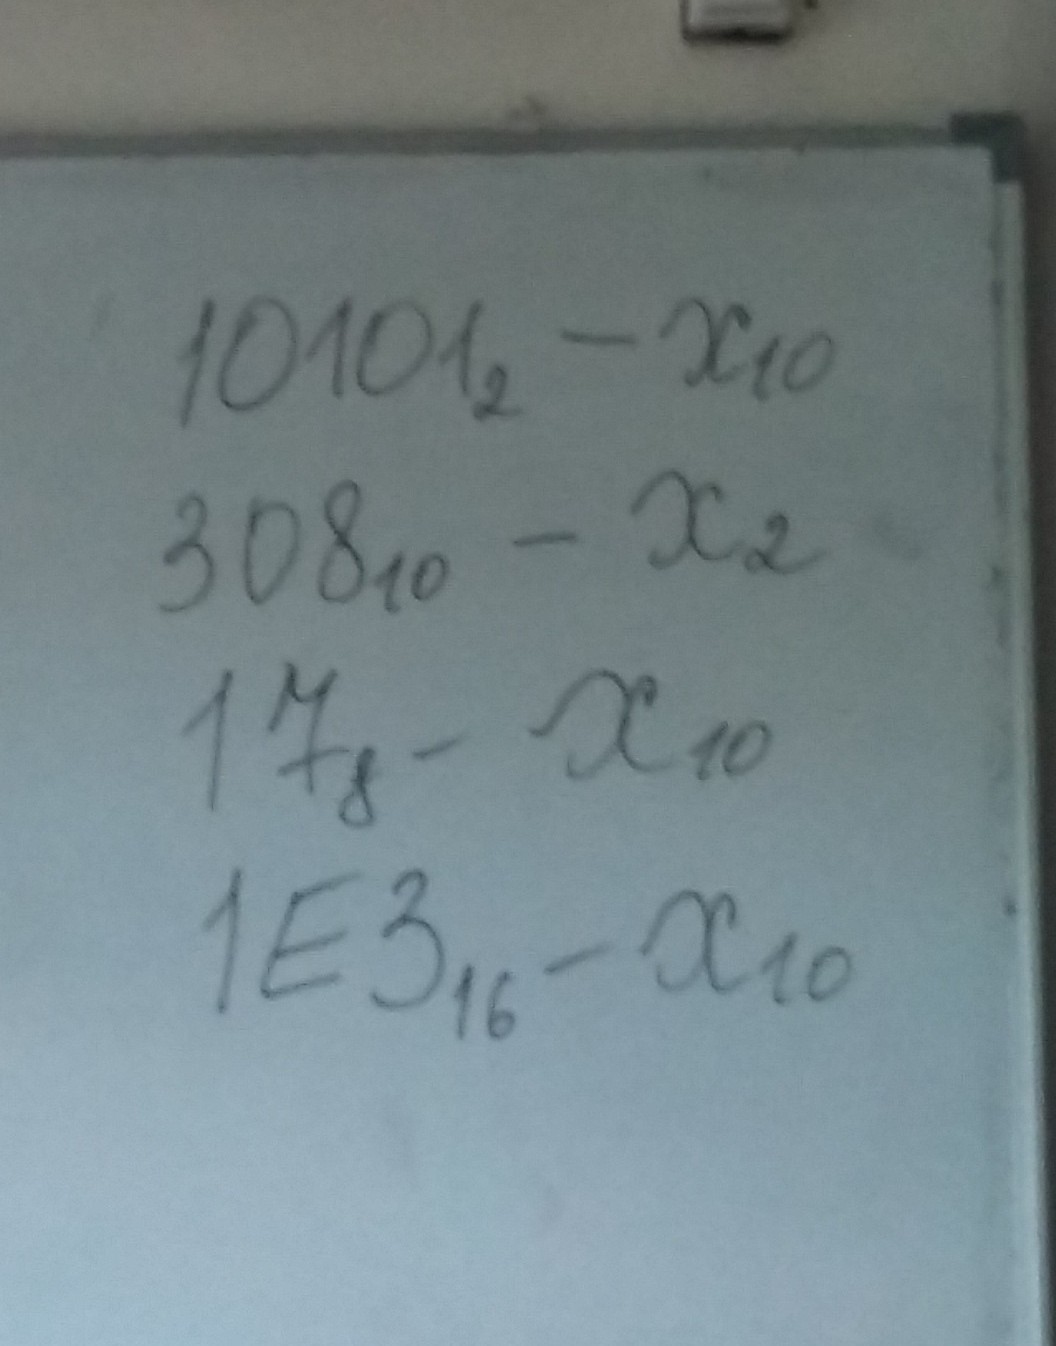 10101₂ – x₁₀
308₁₀ – x₂
17₈ – x₁₀
1E3₁₆ – x₁₀